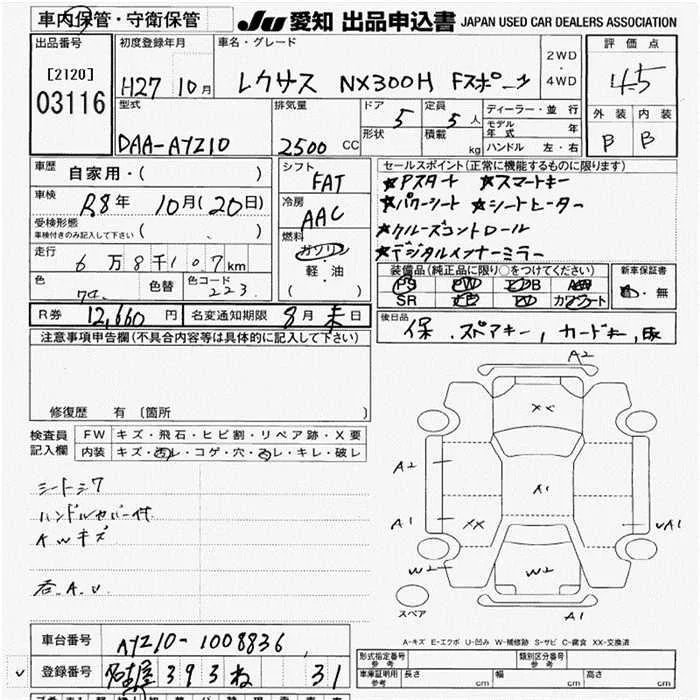 車内保管・守衛保管
JU 愛知 出品申込書 JAPAN USED CAR DEALERS ASSOCIATION
出品番号
[2120]
03116
初度登録年月
H27 10月
車名・グレード
レクサス NX300H Fスポーツ
2WD
・
4WD
評価点
4.5
外装 内装
B B
型式
DAA-AYZ10
排気量
2500 CC
ドア 5
形状
定員 5人
積載 kg
ディーラー・並行
モデル年式 年
ハンドル 左・右
車歴 自家用・( )
車検 R8年 10月(20日)
受検形態
車検付きのみ記入して下さい ( )
走行
6万8千10.7km
色 色替 色コード
223
シフト
FAT
冷房
AAC
燃料
ガソリン
軽・油
( )
セールスポイント(正常に機能するものに限ります)
★Pスタート ★スマートキー
★パワーシート ★シートヒーター
★クルーズコントロール
★デジタルインナーミラー
装備品(純正品に限り○をつけてください)
PS PW
SR
新車保証書
有・無
R券 12,660円 名変通知期限 8月末日
後日品
保、スペアキー, カードキー, 取
注意事項申告欄(不具合内容等は具体的に記入して下さい)
修復歴 有 〔箇所 〕
検査員
記入欄
FW キズ・飛石・ヒビ割・リペア跡・X要
内装 キズ・汚レ・コゲ・穴・スレ・キレ・破レ
シートシワ
ハンドルカバー付
AWキズ
右.A.U
A2
XX
A2
A1
A1 XX
A1
W2 W2
A1
スペア
A-キズ E-エクボ U-凹み W-補修跡 S-サビ C-腐食 XX-交換済
車台番号 AYZ10-1008836
登録番号 名古屋 393 ね 31
形式指定番号
参考
類別区分番号
参考
車庫証明用
参考
長さ cm 幅 cm 高さ cm